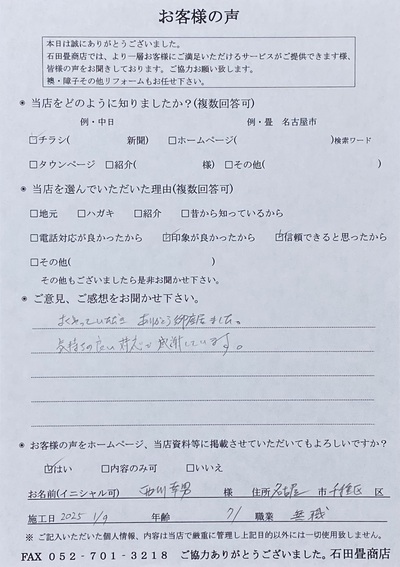 お客様の声
本日は誠にありがとうございました。
石田畳商店では、より一層お客様にご満足いただけるサービスがご提供できます様、
皆様の声をお聞きしております。ご協力お願い致します。
襖・障子その他リフォームもお任せ下さい。
◉ 当店をどのように知りましたか?(複数回答可)
例・中日 例・畳 名古屋市
□チラシ( 新聞) □ホームページ( )検索ワード
□タウンページ □紹介( 様) □その他( )
◉ 当店を選んでいただいた理由(複数回答可)
□地元 □ハガキ □紹介 □昔から知っているから
□電話対応が良かったから ☑印象が良かったから ☑信頼できると思ったから
□その他( )
その他もございましたら是非お聞かせ下さい。
◉ ご意見、ご感想をお聞かせ下さい。
よくやっていただき ありがとう御座居ました。
気持ちの良い対応に感謝しています。
◉ お客様の声をホームページ、当店資料等に掲載させていただいてもよろしいですか?
☑はい □内容のみ可 □いいえ
お名前(イニシャル可) 西川 幸男 様 住所 名古屋 市 千種区 区
施工日 2025 1/9 年齢 71 職業 無職
※ ご記入いただいた個人情報、内容は当店で厳重に管理し上記目的以外には一切使用致しません。
FAX 052-701-3218 ご協力ありがとうございました。石田畳商店